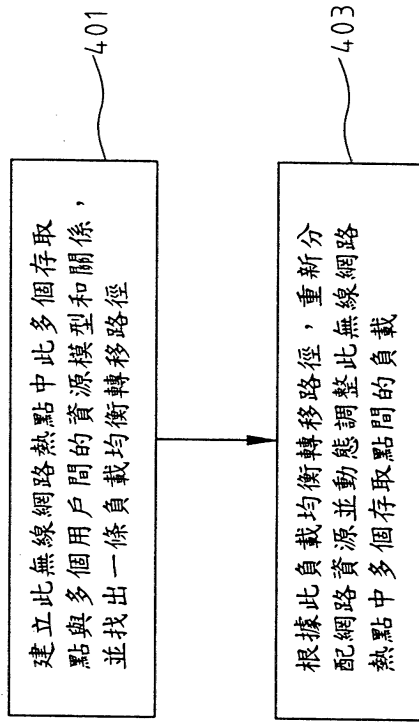 建立此無線網路熱點中此多個存取
點與多個用戶間的資源模型和關係，
並找出一條負載均衡轉移路徑
401
根據此負載均衡轉移路徑，重新分
配網路資源並動態調整此無線網路
熱點中多個存取點間的負載
403